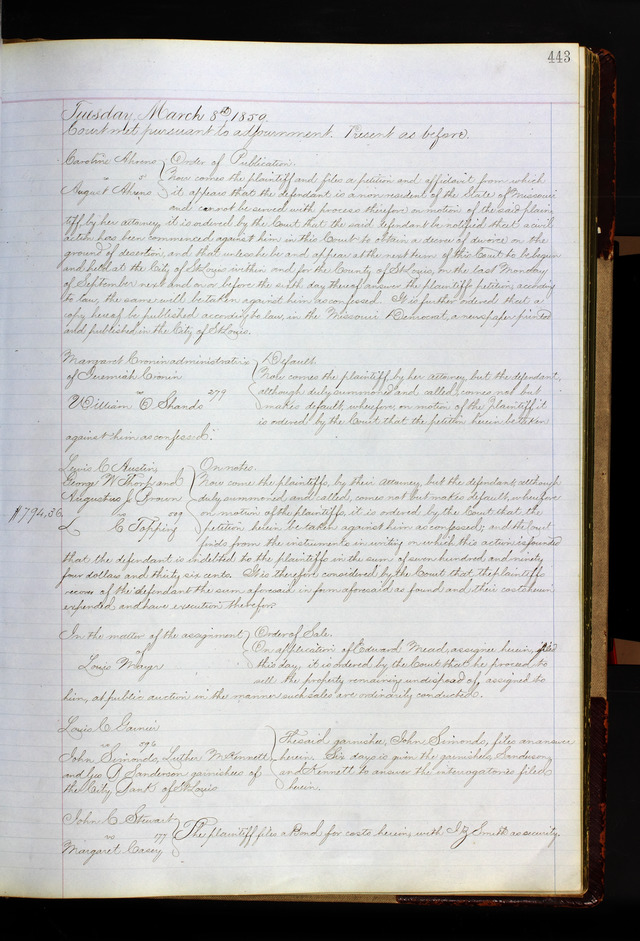 443
Tuesday March 8th 1859
Court met pursuant to adjournment. Present as before.
Caroline Ahrens } Order of Publication.
vs 5 Now comes the plaintiff and files a petition and affidavit from which
August Ahrens it appears that the defendant is a non resident of the State of Missouri
and cannot be served with process therefore on motion of the said plain
tiff by her attorney, it is ordered by the Court that the said defendant be notified that a civil
action has been commenced against him in this Court to obtain a decree of divorce on the
ground of desertion, and that unless he be and appear at the next term of this Court to be begun
and held at the City of St Louis within and for the County of St Louis, on the last Monday
of September next and on or before the sixth day thereof answer the plaintiffs petition, according
to law, the same will be taken against him as confessed. It is further ordered that a
copy hereof be published according to law, in the Missouri Democrat, a newspaper printed
and published in the City of St Louis.
Margaret Cronin administratrix } Default
of Jeremiah Cronin Now comes the plaintiff by her attorney, but the defendant,
vs 279 although duly summoned and called, comes not but
William O Shands makes default, wherefore, on motion of the plaintiff it
is ordered by the Court that the petition herein be taken
against him as confessed.
Lewis C Austin, } On notes.
George W Thorp and Now come the plaintiffs, by their attorney, but the defendant, although
Augustus J Brown duly summoned and called, comes not but makes default, wherefore
$794,36 vs on motion of the plaintiffs, it is ordered by the Court that the
L C Topping petition herein be taken against him as confessed; and the Court
finds from the instruments in writing on which this action is founded
that the defendant is indebted to the plaintiffs in the sum of seven hundred and ninety
four dollars and thirty six cents. It is therefore considered by the Court that the plaintiffs
recover of the defendant the sum aforesaid in form aforesaid as found and their costs herein
expended and have execution therefor.
In the matter of the assignment } Order of Sale.
of On application of Edward Mead, assignee herein, filed
Louis Mayr this day, it is ordered by the Court that he proceed to
sell the property remaining undisposed of, assigned to
him, at public auction in the manner such sales are ordinarily conducted.
Louis C Garnier
vs The said garnishee, John Simonds, files an answer
John Simonds, Luther M Kennett herein. Six days is given the garnishees, Sanderson
and Geo D Sanderson garnishees of and Kennett to answer the interrogatories filed
the City Bank of St Louis herein.
John C Stewart
vs 177 } The plaintiff files a Bond for costs herein, with Smith as security.
Margaret Casey